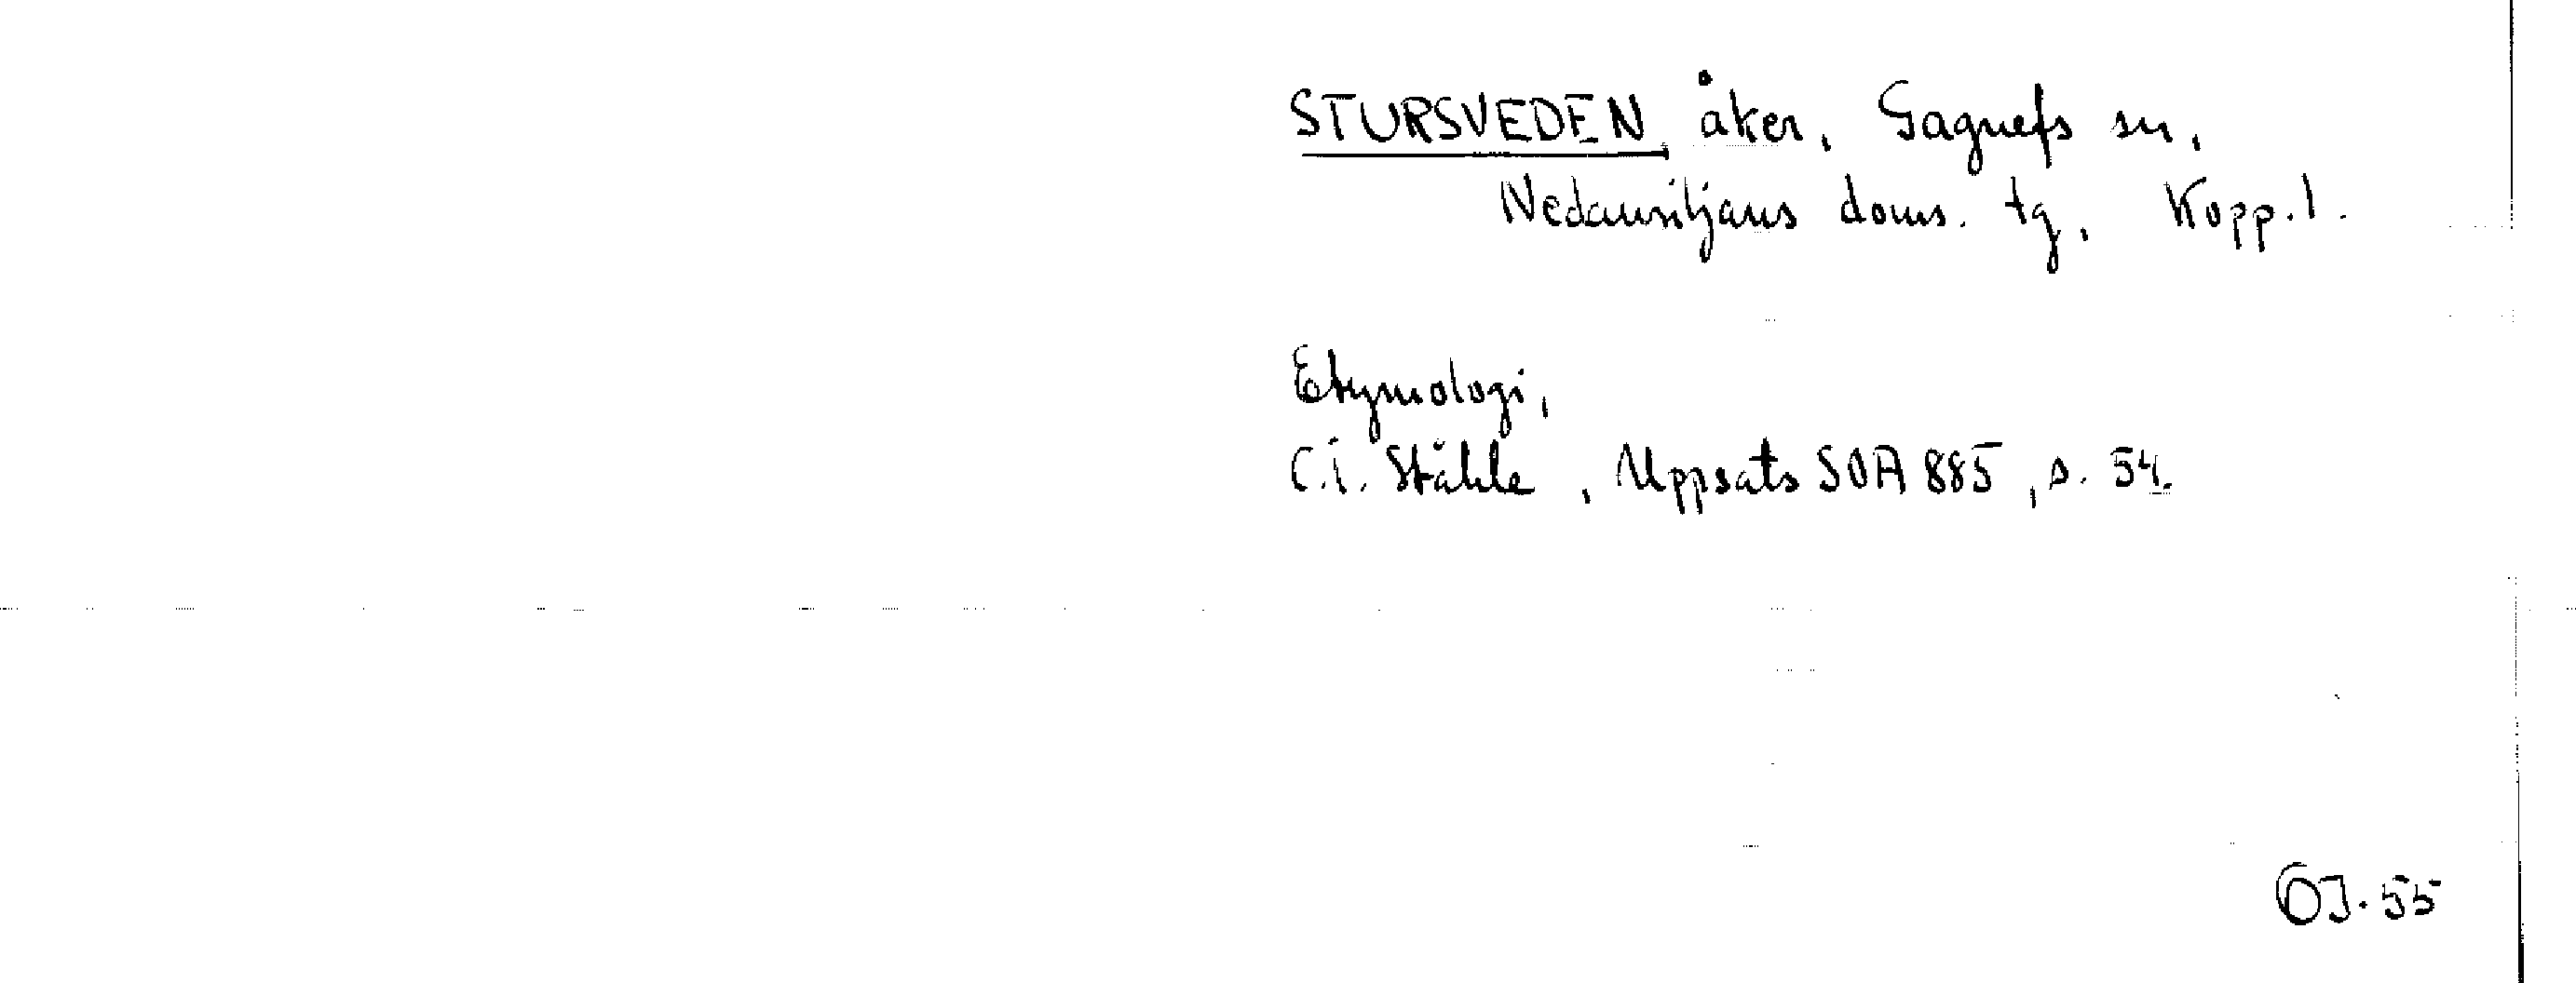 STURSVEDEN, åker, Gagnefs sn,
Nedansiljans doms. tg, Kopp.l.
Etymologi,
C.I. Ståhle, Uppsats SOA 885, s. 54.
OJ. 55